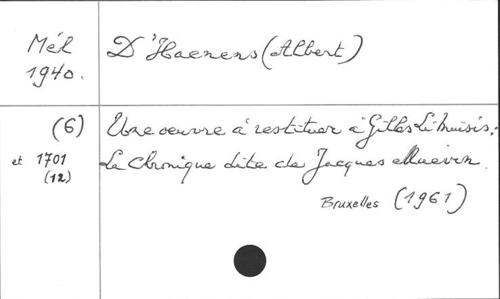 Mél
1940.
D'Haenens (Albert)
(6)
et 1701
(12)
Une oeuvre à restituer à Gilles Li Muisis,
La Chronique dite de Jacques Muevin.
Bruxelles (1961)